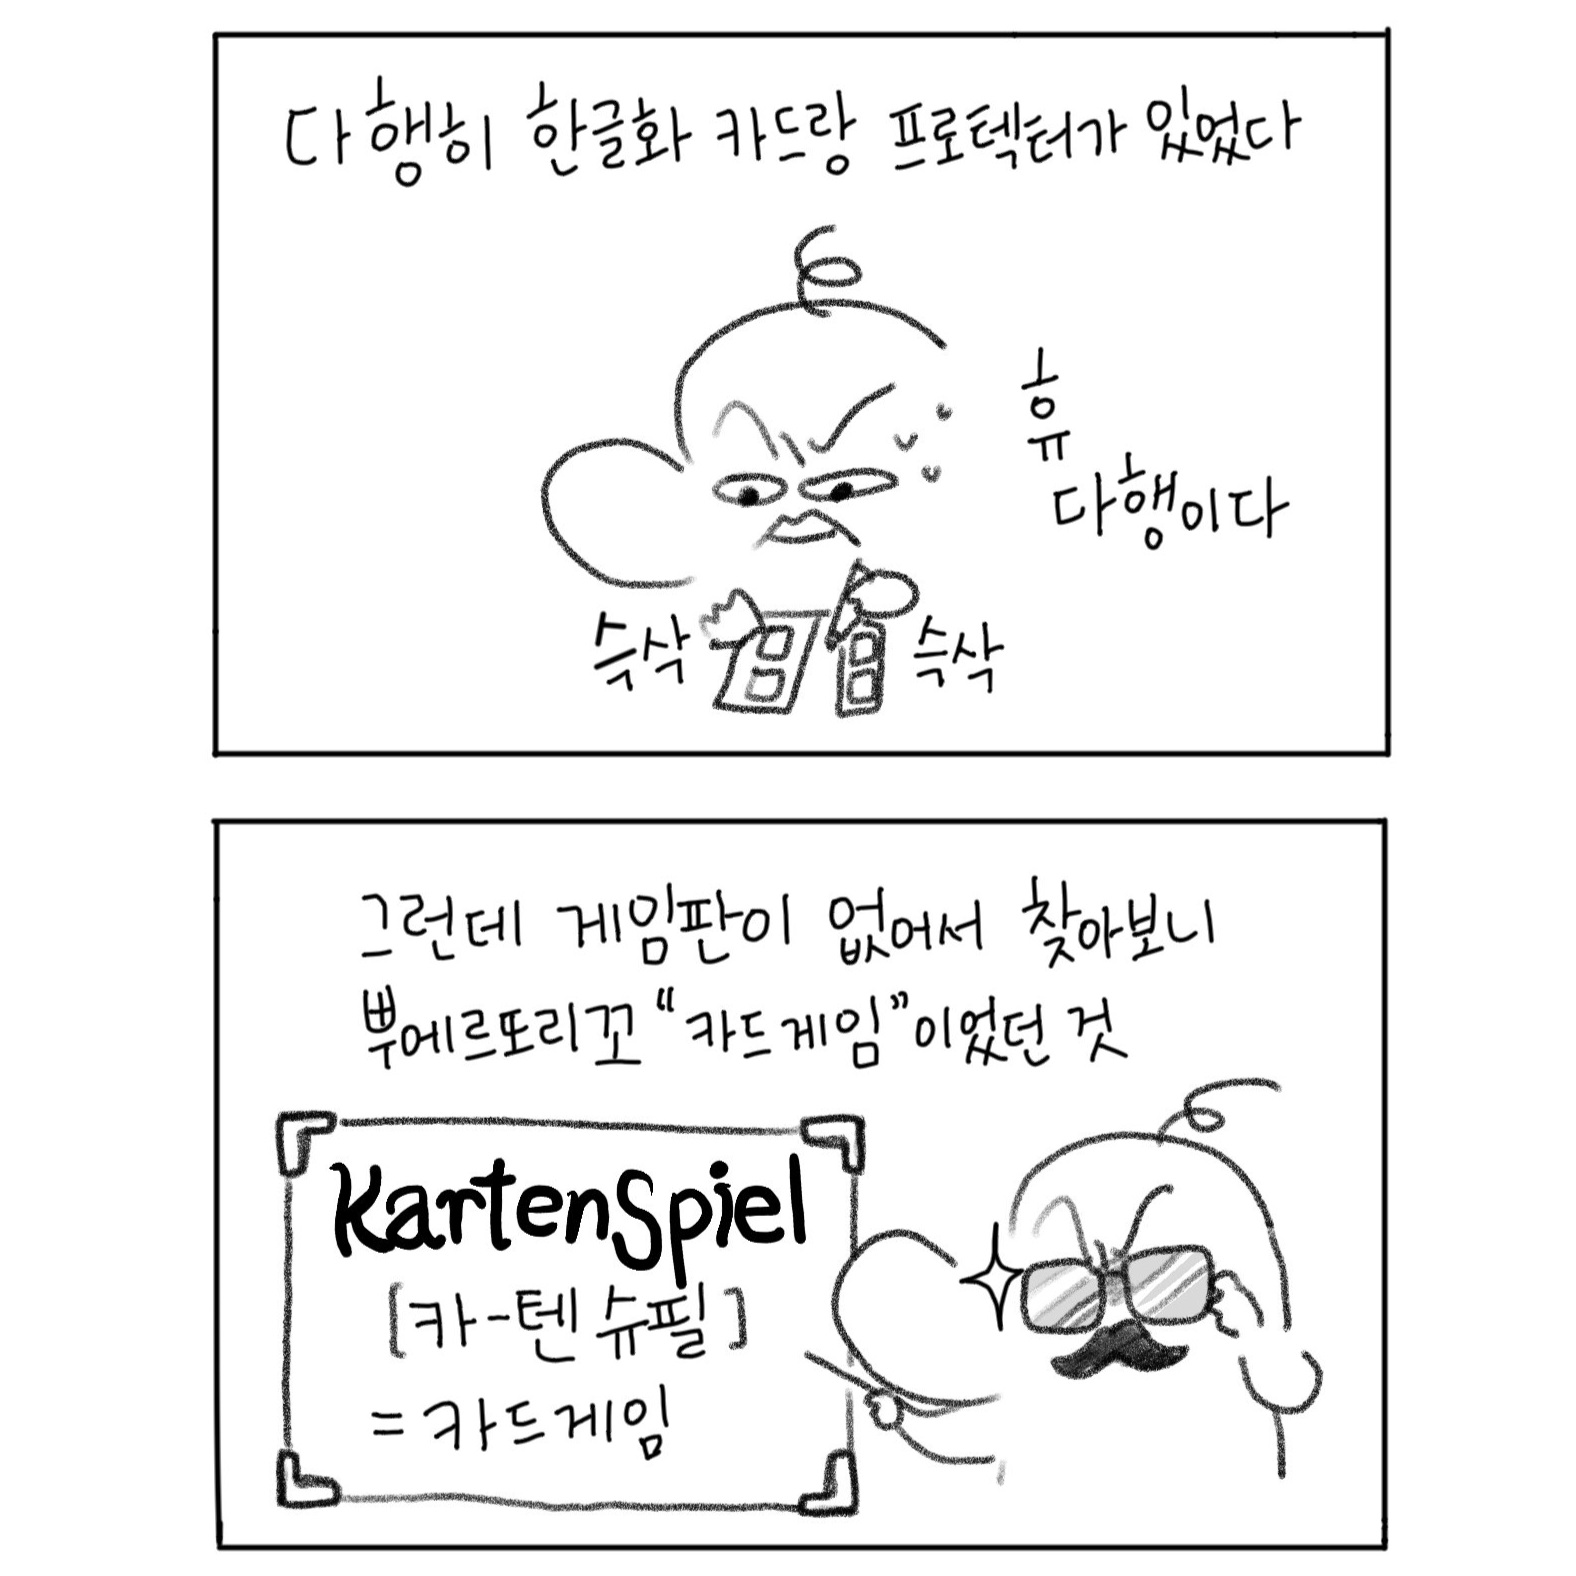 다행히 한글화 카드랑 프로텍터가 있었다
휴
다행이다
슥삭
슥삭
그런데 게임판이 없어서 찾아보니
뿌에르또리꼬 “카드게임”이었던 것
KartenSpiel
[카-텐 슈필]
= 카드게임